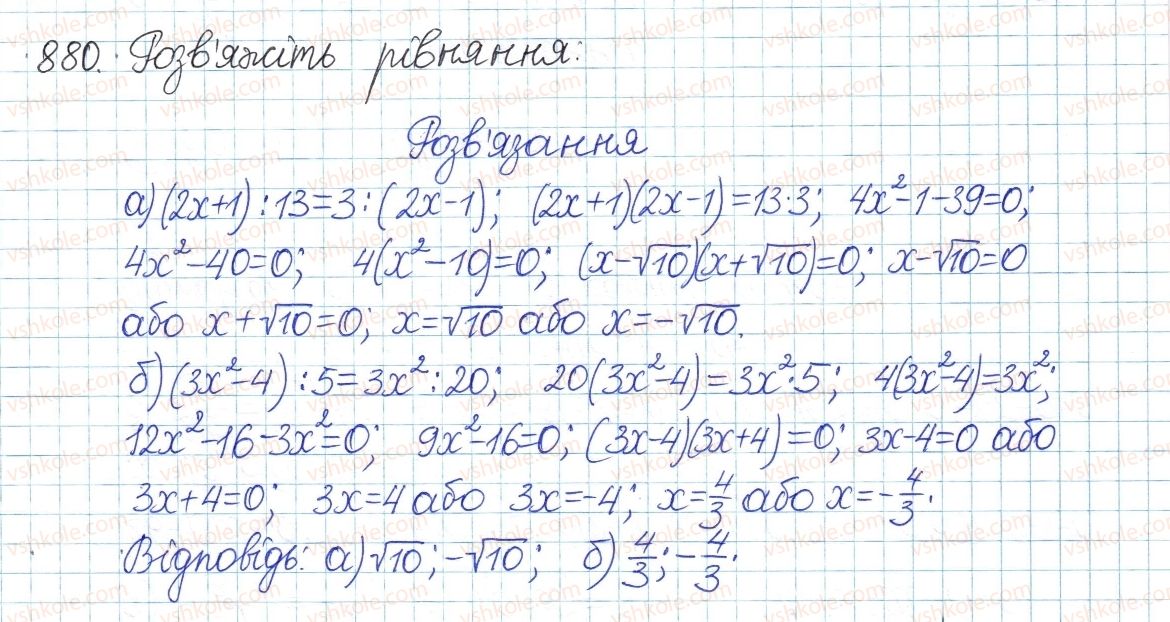 880. Розв'яжіть рівняння:
Розв'язання
а) (2x+1) : 13 = 3 : (2x-1); (2x+1)(2x-1) = 13·3; 4x²-1-39=0;
4x²-40=0; 4(x²-10)=0; (x-√10)(x+√10)=0; x-√10=0
або x+√10=0; x=√10 або x=-√10.
б) (3x²-4) : 5 = 3x² : 20; 20(3x²-4) = 3x²·5; 4(3x²-4)=3x²;
12x²-16-3x²=0; 9x²-16=0; (3x-4)(3x+4)=0; 3x-4=0 або
3x+4=0; 3x=4 або 3x=-4; x=4/3 або x=-4/3.
Відповідь: а) √10; -√10; б) 4/3; -4/3.